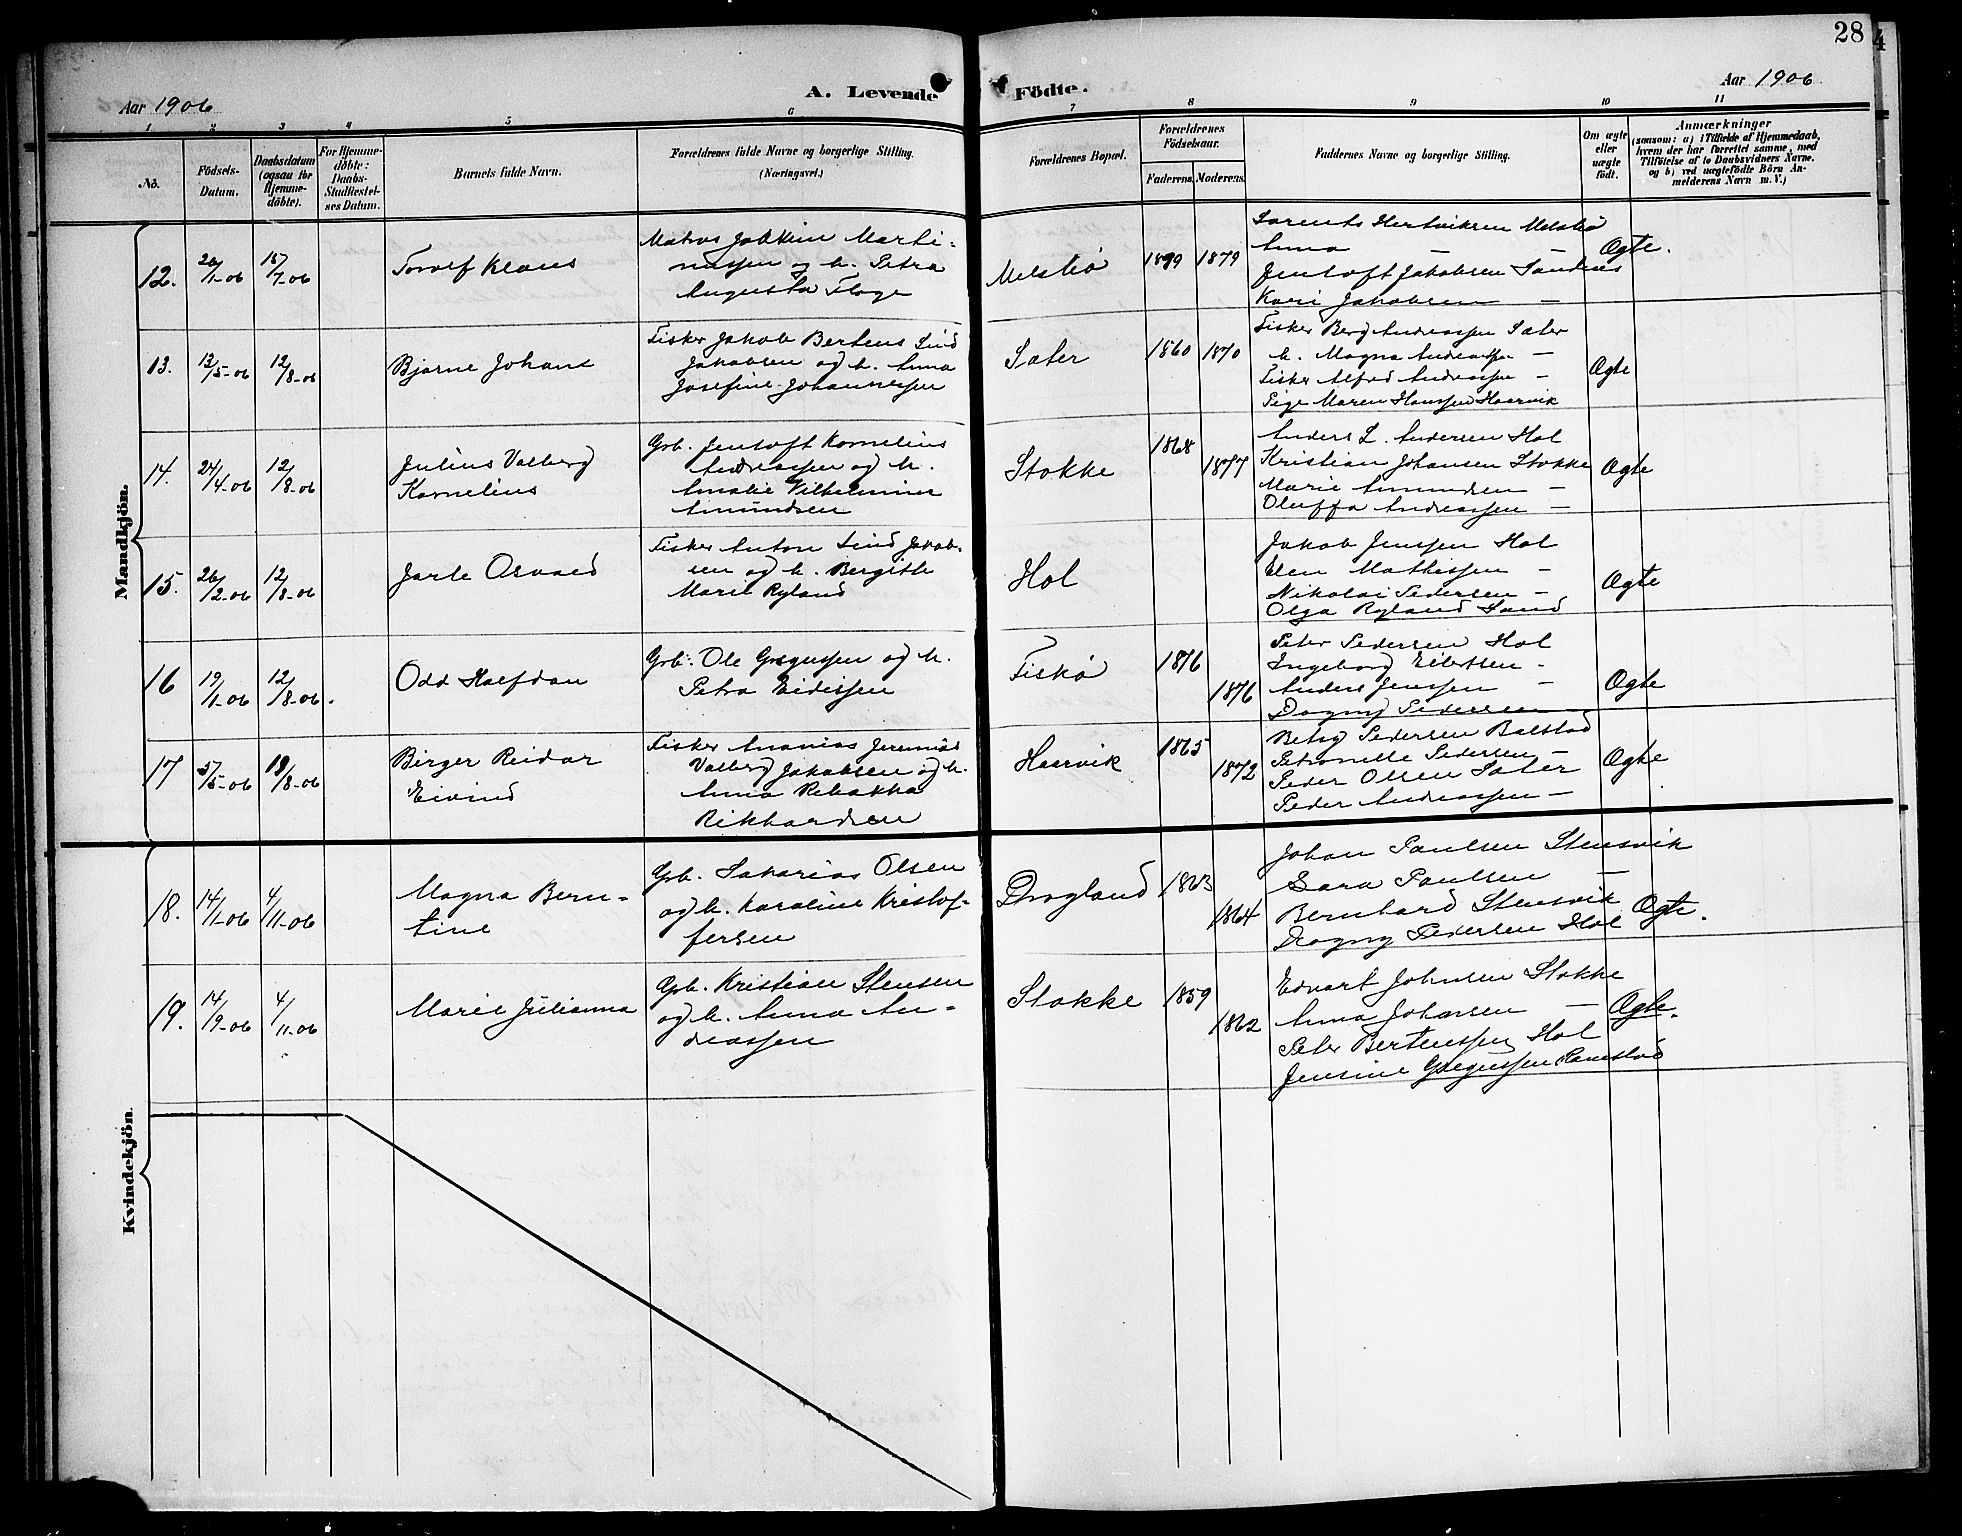 28
4
Aar 1906
A. Levende Födte.
Aar 1906
1 2 3 4 5 6 7 8 9 10 11
No.
Födsels-
Datum.
Daabsdatum
(ogsaa for
Hjemme-
döbte).
For Hjemme-
döbte:
Daabs-
Stadfæstel-
ses Datum.
Barnets fulde Navn.
Forældrenes fulde Navne og borgerlige Stilling.
(Næringsvei.)
Forældrenes Bopæl.
Forældrenes
Födselsaar.
Faderens. Moderens.
Faddernes Navne og borgerlige Stilling.
Om ægte
eller
uægte
födt.
Anmærkninger
(saasom: a) i Tilfælde af Hjemmedaab,
hvem der har forrettet samme, med
Tilföielse af to Daabsvidners Navne,
og b) ved uægtefödte Börn An-
melderens Navn m. V.)
Mandkjön.
12.
26/1-06
15/7-06
Torolf Klaus
Matros Joakim Marti-
nussen og h. Petra
Augusta Floge
1879
Lorents Hertviksen
Anna — —
Jentoft Jakobsen Sandnes
Kari Jakobsen —
Ægte.
13.
13/5-06
12/8-06
Bjarne Johan
Fisker Jakob Bertens Lind
Jakobsen og h. Anna
Josefine Johannessen
Sæter
1860
1870
Fisker Berg Andreassen Sæter
h. Magna Andreassen —
Fisker Alfred Andreassen —
Pige Maren Hanssen Haarvik
Ægte
14.
24/4-06
12/8-06
Julius Valberg
Kornelius
Grb. Jentoft Kornelius
Andreassen og h.
Amalie Vilhelmine
Amundsen
Stokke
1868
1877
Anders L. Andersen Hol
Kristian Johansen Stokke
Marie Amundsen —
Oluffa Andreassen —
Ægte
15.
26/2-06
12/8-06
Jarle Osvald
Fisker Anton Lind Jakob-
sen og h. Bergith
Marie Ryland
Hol
Jakob Jenssen Hol
Elen Mathissen —
Nikolai Pedersen —
Olga Ryland Sand
Ægte
16
19/1-06
12/8-06.
Odd Halfdan
Grb. Ole Gregussen og h.
Petra Eidissen
Fiskø
1876
1876
Peter Pedersen Hol
Ingeborg Eilertsen -
Anders Jenssen —
Dagny Pedersen —
Ægte
17
5/5-06
19/8-06
Birger Reidar
Eivind
Fisker Ananias Jeremias
Valberg Jakobsen og h.
Anna Rebakka
Rikhardsen
Haarvik
1865
1872
Betsy Pedersen Balstad
Petronelle Pedersen —
Peder Olsen Sæter
Peder Andreassen —
Ægte
Kvindekjön.
18.
14/1-06
4/11-06
Magna Bern-
tine
Grb. Sakarias Olsen
og h. Karoline Kristof-
fersen
Drogland
1863
1864
Johan Paulsen Stensvik
Sara Paulsen —
Bernhard Stensvik
Dagny Pedersen Hol
Ægte.
19.
14/9-06
4/11-06
Marie Julianna
Grb. Kristian Stensen
og h. Anna An-
dreassen
Stokke
1859
1862
Edvart Johnsen Stokke
Anna Johansen —
Peter Bertenssen Hol
Jensine Gregussen Ramstad
Ægte.